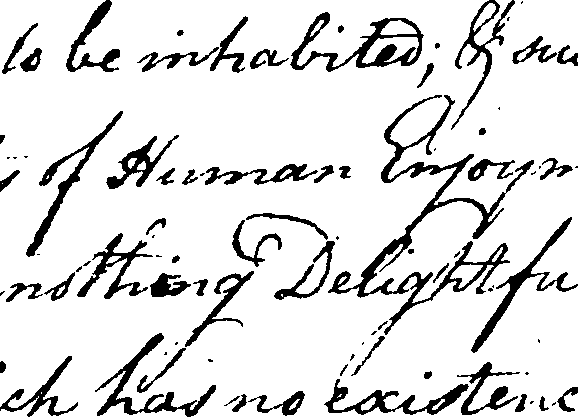 to be inhabited; & su
s of Human Enjoym
nothing Delightfu
ich has no existenc